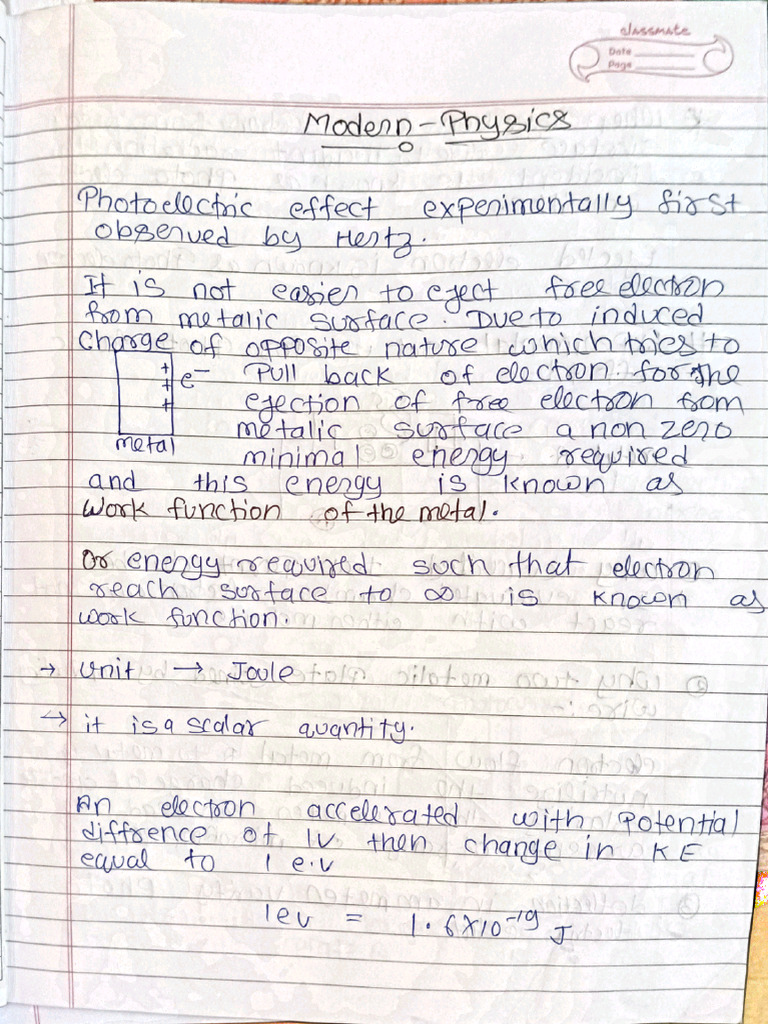 classmate
Date
Page
Modern-Physics
Photoelectric effect experimentally first
observed by Hertz.
It is not easier to eject free electron
from metalic surface. Due to induced
charge of opposite nature which tries to
+ e- Pull back of electron. for the
+
+ ejection of free electron from
metalic surface a non zero
metal
minimal energy required
and this energy is known as
work function of the metal.
or energy required such that electron
reach surface to ∞ is known as
work function.
→ unit → Joule
→ it is a scalar quantity.
An electron accelerated with potential
diffrence of 1V then change in KE
equal to 1 e.v
1ev = 1.6×10-19 J